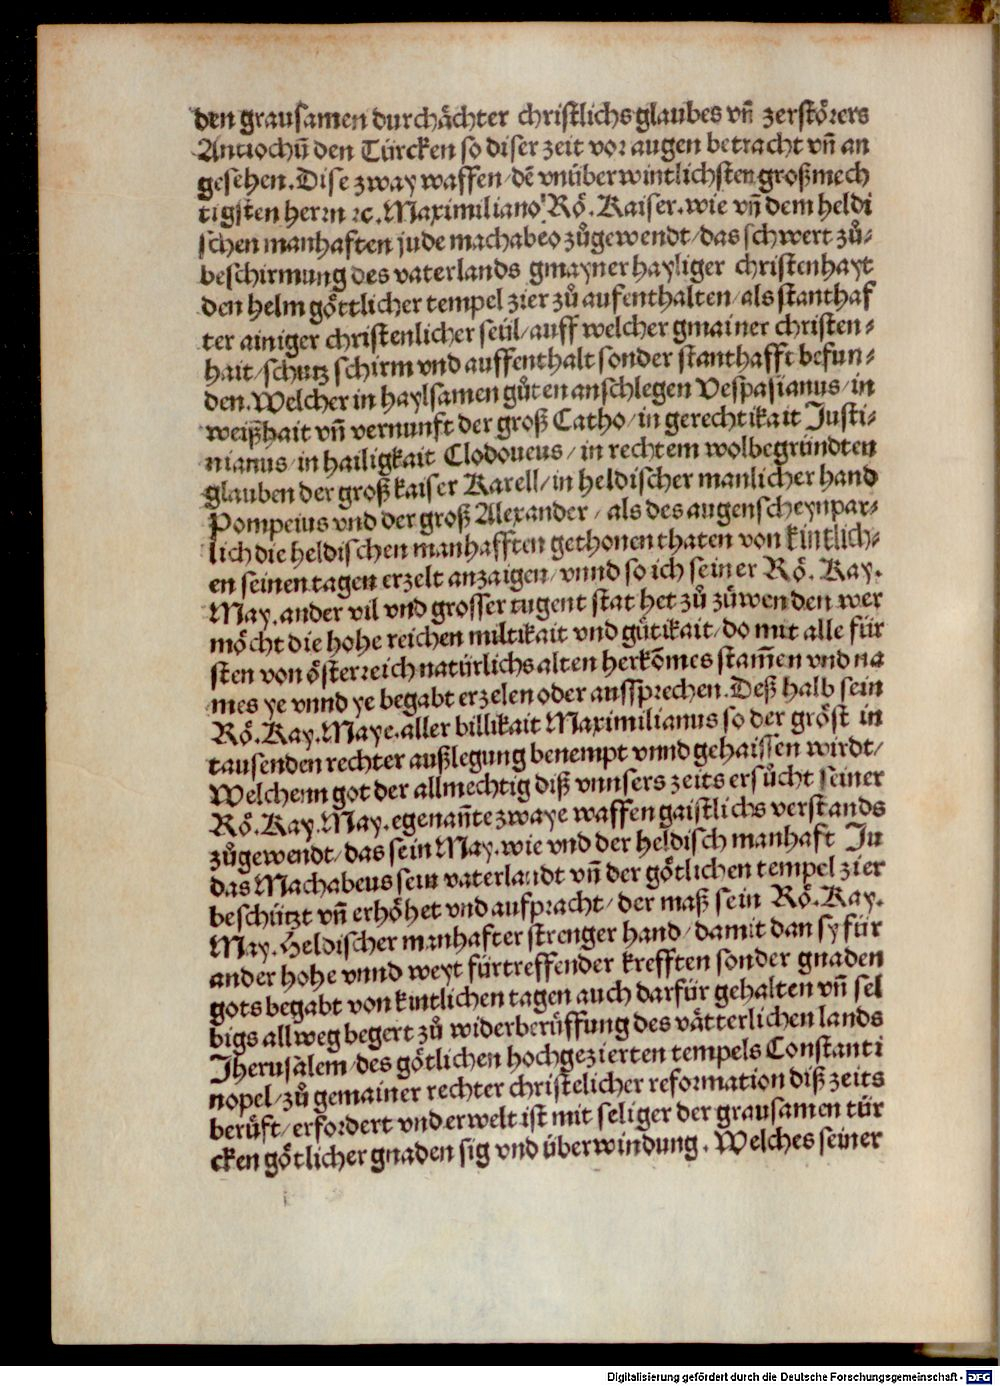 den grausamen durchächter christlichs glaubes vn̄ zerstörers
Antiochū den Türcken so diser zeit vor augen betracht vn̄ an
gesehen. Dise zway waffen / dē vnüberwintlichsten großmech
tigsten herrn ⁊c. Maximiliano Rö. Kaiser. wie vn̄ dem heldi
schen manhaften jude machabeo zůgewendt / das schwert zů⸗
beschirmung des vaterlands gmayner hayliger christenhayt
den helm göttlicher tempel zier zů aufenthalten / als stanthaf
ter ainiger christenlicher seül / auff welcher gmainer christen⸗
hait / schutz schirm vnd auffenthalt sonder stanthafft befun⸗
den. Welcher in haylsamen gůten anschlegen Vespasianus / in
weißhait vn̄ vernunft der groß Catho / in gerechtikait Justi⸗
nianus / in hailigkait Clodoueus / in rechtem wolbegründten
glauben der groß kaiser Karell / in heldischer manlicher hand
Pompeius vnd der groß Alexander / als des augenscheynpar⸗
lich die heldischen manhafften gethonen thaten von kintlich⸗
en seinen tagen erzelt anzaigen / vnnd so ich seiner Rö. Kay.
May. ander vil vnd grosser tugent stat het zů zůwenden wer
möcht die hohe reichen miltikait vnd gütikait / do mit alle für
sten von österreich natürlichs alten herkōmes stam̄en vnd na
mes ye vnnd ye begabt erzelen oder aussprechen. Deß halb sein
Rö. Kay. Maye. aller billikait Maximilianus so der gröst in
tausenden rechter außlegung benempt vnnd gehaissen wirdt /
Welchenn got der allmechtig diß vnnsers zeits ersůcht seiner
Rö. Kay. May. egenan̄te zwaye waffen gaistlichs verstands
zůgewendt / das sein May. wie vnd der heldisch manhaft Ju
das Machabeus sein vaterlandt vn̄ der götlichen tempel zier
beschützt vn̄ erhöhet vnd aufpracht / der maß sein Rö. Kay.
May. Heldischer manhafter strenger hand / damit dan sy für
ander hohe vnnd weyt fürtreffender krefften sonder gnaden
gots begabt von kintlichen tagen auch darfür gehalten vn̄ sel
bigs allweg begert zů widerberüffung des vätterlichen lands
Jherusalem / des götlichen hochgezierten tempels Constanti
nopel / zů gemainer rechter christelicher reformation diß zeits
berüft / erfordert vnd erwelt ist mit seliger der grausamen tür
cken götlicher gnaden sig vnd überwindung. Welches seiner
Digitalisierung gefördert durch die Deutsche Forschungsgemeinschaft - DFG